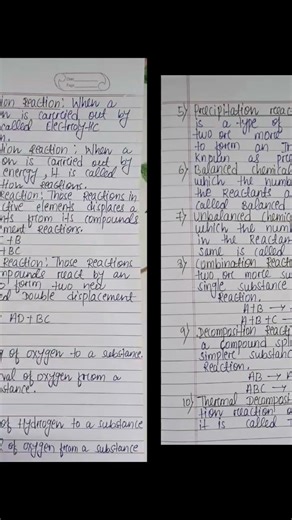 tion Reaction: When a
on is carried out by
called Electrolytic
on.
tion Reaction: When a
on is carried out by
energy, it is called
tion Reactions.
Reaction: Those Reactions in
ctive elements displaces a
ents from its compounds
ement Reactions.
C+B
+BC
Reaction: Those Reactions
mpounds react by an
to form two new
ed Double displacement
AD+BC
g of oxygen to a substance
val of oxygen from a
stance.
of Hydrogen to a substance
of oxygen from a substance
5) Precipitation reac
is a type of
two or more
to form an In
known as pre
6) Balanced chemical
which the numb
the Reactants a
called Balanced
7) Unbalanced Chemic
which the numb
in the Reactan
same is called
8) Combination React
two or more su
single substance
Reaction.
A+B →
A+B+C →
9) Decomposition Reactio
a compound spli
simpler substanc
Reaction.
AB → A
ABC →
10) Thermal Decomposit
tion reaction
it is called T